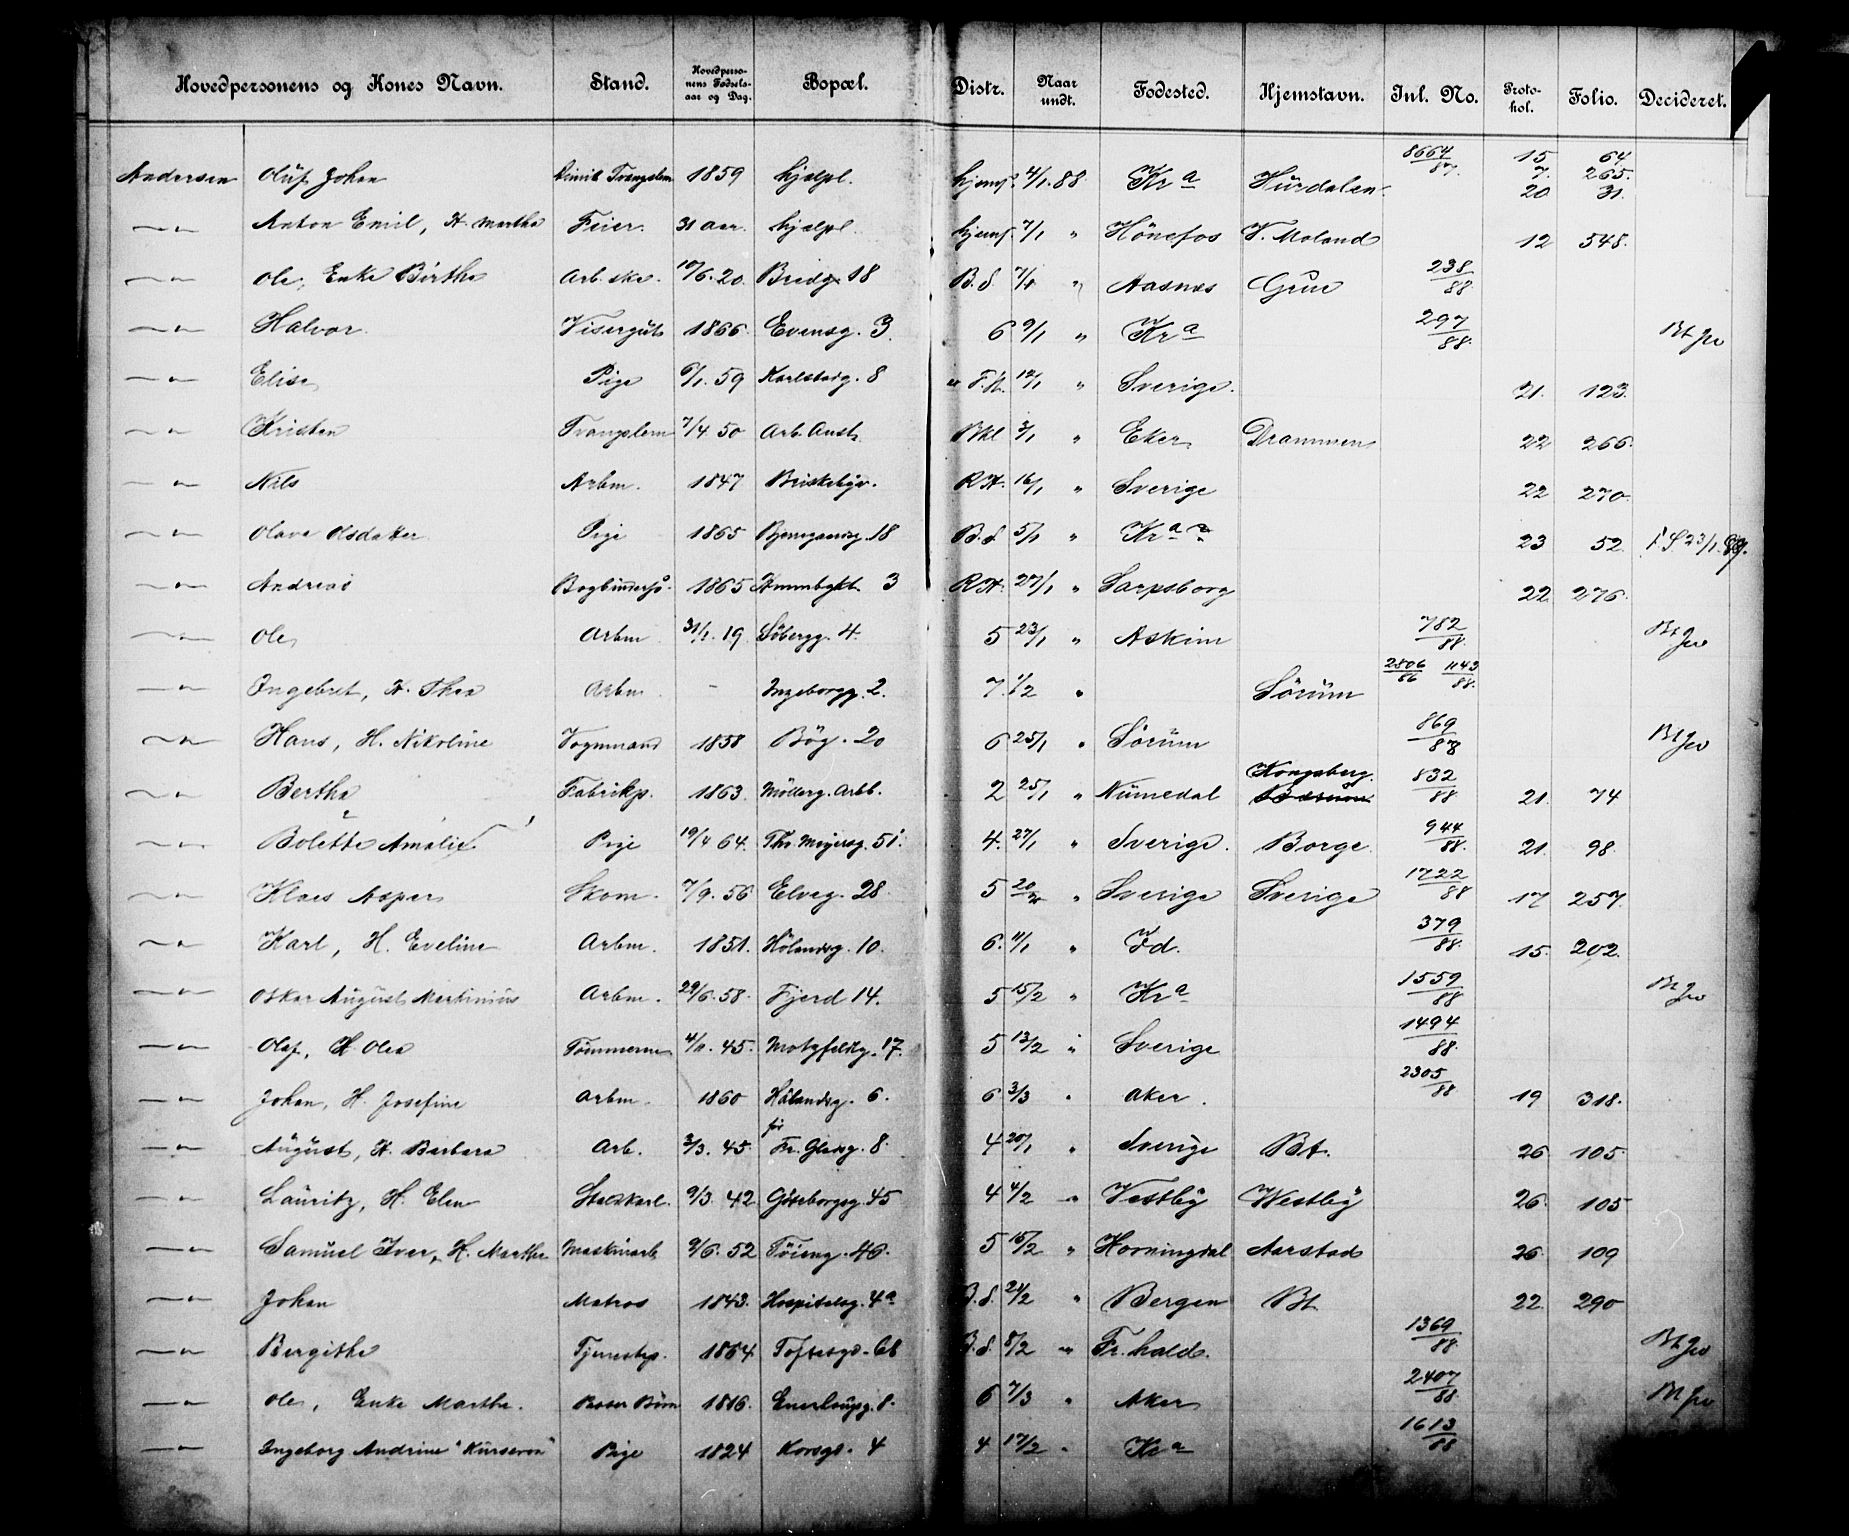 Hovedpersonens og Kones Navn. Stand. Hovedpersonens Fødselsaar og Dag. Bopæl. Distr. Naar undt. Fødested. Hjemstavn. Inl. No. Protokol. Folio. Decideret.
Andersen Oluf Johan Tvangslem 1859 hjælpl. 4/1. 88 Kr a Hurdalen. 8664/87. 15 64 7. 265. 20 31.
—„— Anton Emil, H. Martha Feier. 31 aar. hjælpl. 7/1 „ Hönefos V. Moland 12 548.
—„— Ole, Enke Birthe Arb. ske. 10/6. 20. Bredg 18 B.d. 7/1 „ Aasnes Grue 238/88
—„— Halvor. Visergut 1866. Evensg. 3. 6 9/1 „ Kr a 297/88. Bt
—„— Elise Pige 6/1. 59 Karlstadg. 8 12/1 „ Sverige. 21. 123.
—„— Kristen Tvangslem 7/4. 50 Arb. Anst. 3/1 „ Eker Drammen 22 266.
—„— Nils Arbm. 1847 Briskebyv. R.H. 16/1 „ Sverige 22 270.
—„— Olava Olsdatter Pige 1865 18 B.d. 5/1 „ Kr a 23 52. 23/1.
—„— Andreas 1865 3 R.H. 27/1 „ Sarpsborg 22 276.
—„— Ole Arbm 31/1. 19. Söbergg. 4. 5 23/1 „ Askim 782/88. Bt
—„— Ingebret, H. Thea Arbm. - Ingeborgg. 2. 7. 1/2 „ Sörum 2806/86 1143/88.
—„— Hans, H. Nikoline Vognmand 1838 Bög. 20 6 25/1 „ Sörum 869/88 Bt
—„— Bertha Fabrikp. 1863. Möllerg. Arbb. 2 25/1 „ Numedal Kongsberg. Bærum 832/88 21. 74
—„— Bolette Amalie Pige 19/4 64. Th. Meyersg. 51. 4. 27/1 „ Sverige. Borge. 944/88. 21. 98.
—„— Klaes Asper Skom. 7/9. 56 Elveg. 28. 5 20/2 „ Sverige Sverige 1722/88 17 257.
—„— Karl, H. Eveline Arbm. 1851. Hölandsg. 10. 6. 11/1 „ Fd. 379/88. 15. 202.
—„— Oskar August Martinius Arbm. 29/6. 58. Fjerd 14. 5 15/2 „ Kr a 1559/88 Bt
—„— Olaf, H. Olea Tömmerm 4/11. 45. Motzfeldtg. 17. 5 13/2 „ Sverige 1494/88.
—„— Johan, H. Josefine Arbm. 1860 Hölandsg. 6. 6 3/3 „ Aker. 2305/88 19 318.
—„— August, H. Barbara Arb. 3/3. 45. för Fr. Gladsg. 8. 4 20/1 „ Sverige Bt. 26 105
—„— Lauritz, H. Elen Stadskarl. 9/3. 42 Göteborgsg. 45 4 4/2 „ Vestby Westby 26. 105
—„— Samuel Iver, H. Marthe Maskinarb 9/6. 52 Töieng. 40. 5 16/2 „ Horningdal Aarstad 26. 109
—„— Johan Matros 1843. Hospitalsg. 4a B.d. 24/2 „ Bergen Bt 22. 290
—„— Bergithe Tjenestep. 1864 Toftesgd. 6b B.d. 8/2 „ Fr.hald. 1369/88. Bt
—„— Ole, Enke Marthe. 1816. Enerhaugsg. 8. 6 7/3 „ Aker 2407/88. Bt
—„— Ingeborg Andrine "Kurseron" Pige 1824 Korsgd. 4 4 17/2 „ Kr a 1613/88